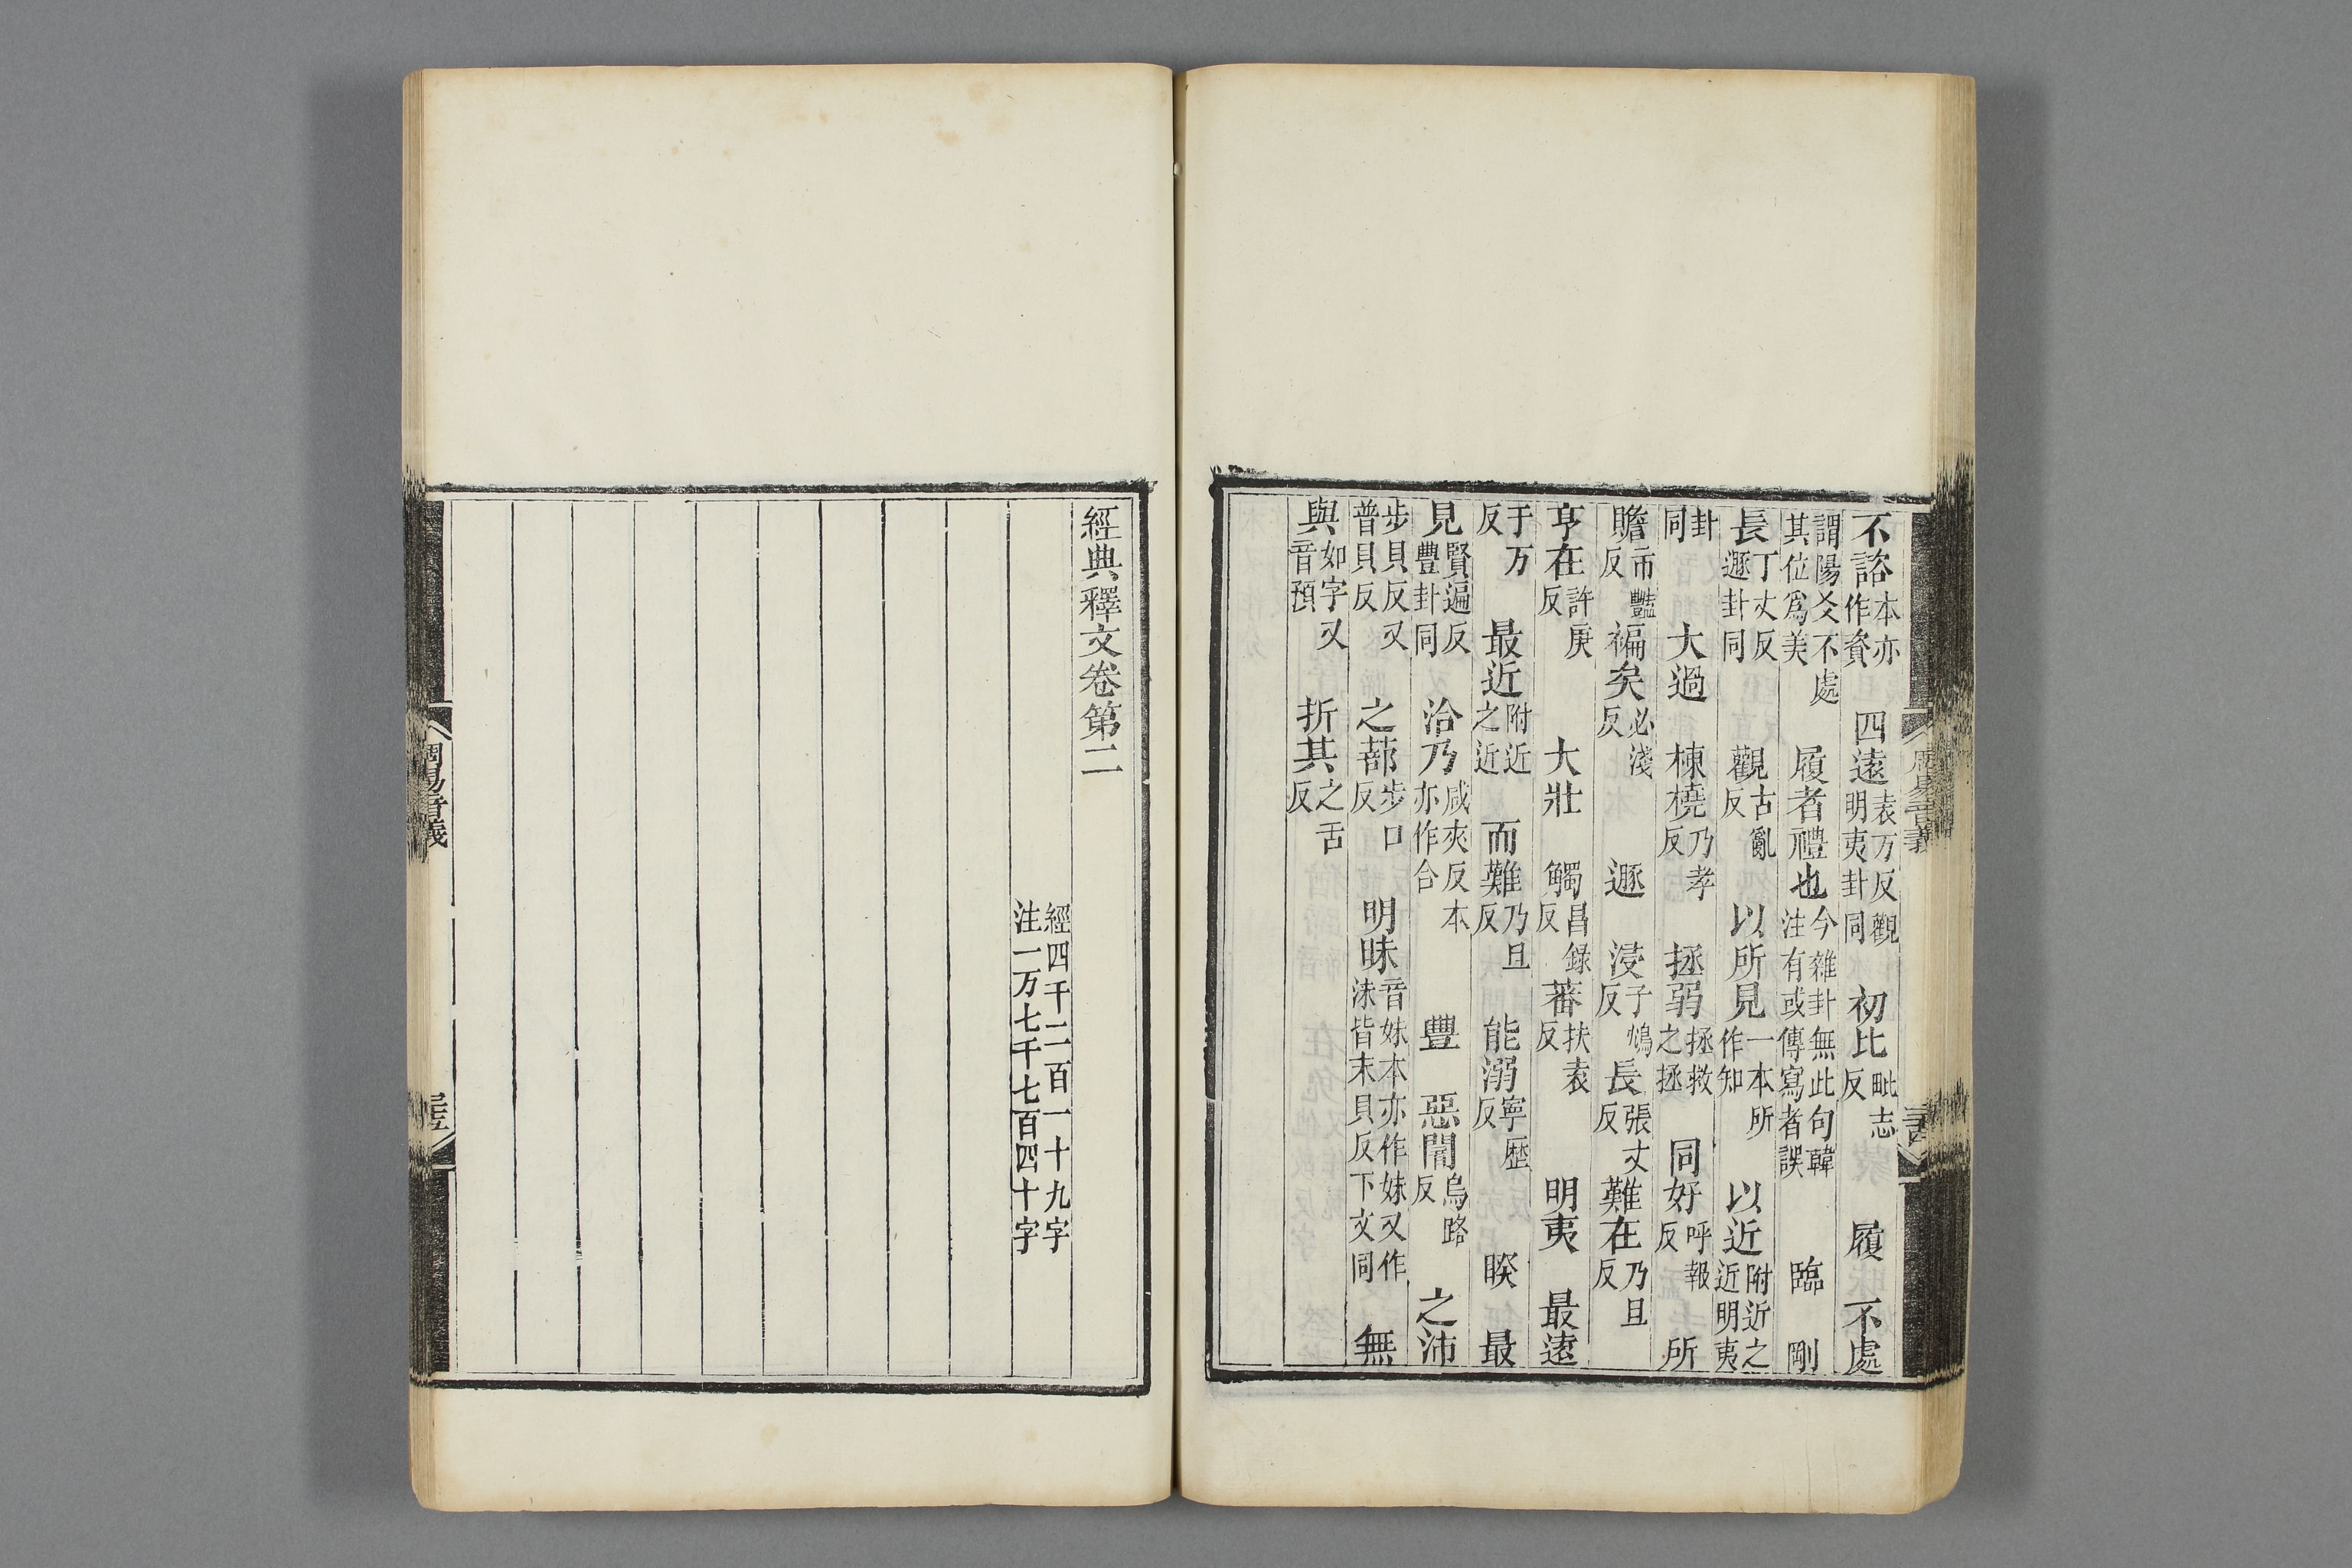 不諮本亦作資 四遠袁万反觀明夷卦同 初比毗志反 履 不處
謂陽爻不處其位爲美 履者禮也今雜卦無此句韓注有或傳寫者誤 臨 剛
長丁丈反遯卦同 觀古亂反 以所見一本所作知 以近附近之近明夷
卦同 大過 棟橈乃孝反 拯弱拯救之拯 同好呼報反 所
贍市豔反 褊矣必淺反 遯 浸子鴆反 長張丈反 難在乃旦反
亨在許庚反 大壯 觸昌錄反 蕃扶袁反 明夷 最遠
于万反 最近附近之近 而難乃旦反 能溺寧歷反 睽 最
見賢遍反豐卦同 洽乃咸夾反本亦作合 豐 惡闇烏路反 之沛
步貝反又普貝反 之蔀步口反 明昧音妹本亦作妹又作沬皆末貝反下文同 無
與如字又音預 折其之舌反
經典釋文卷第二
經四千二百一十九字
注一万七千七百四十字
周易音義